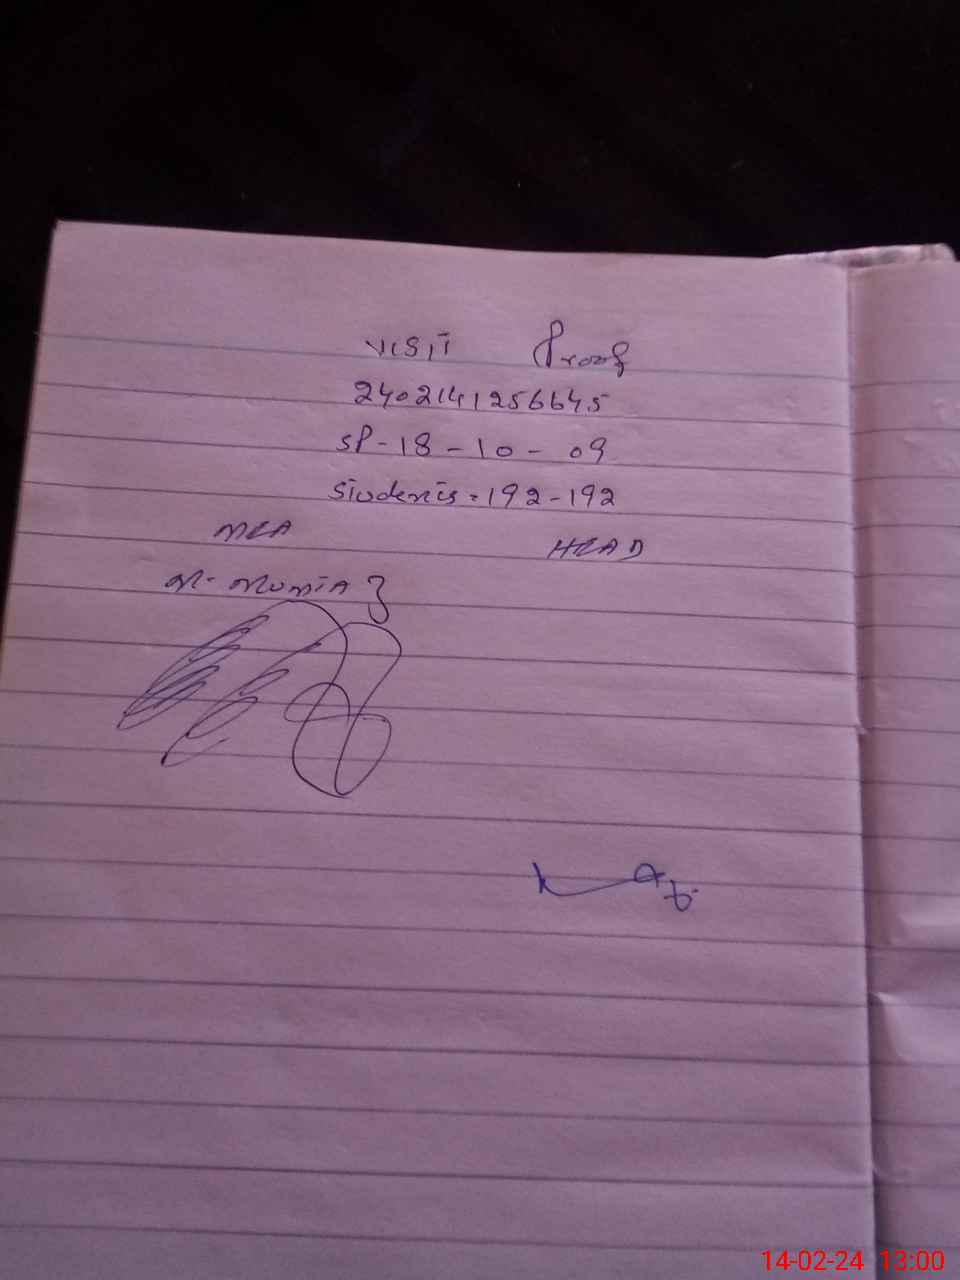 VISIT Proof
2402141256645
SP-18-10-09
Students = 192-192
MEA HEAD
M. Mumtaz
14-02-24 13:00